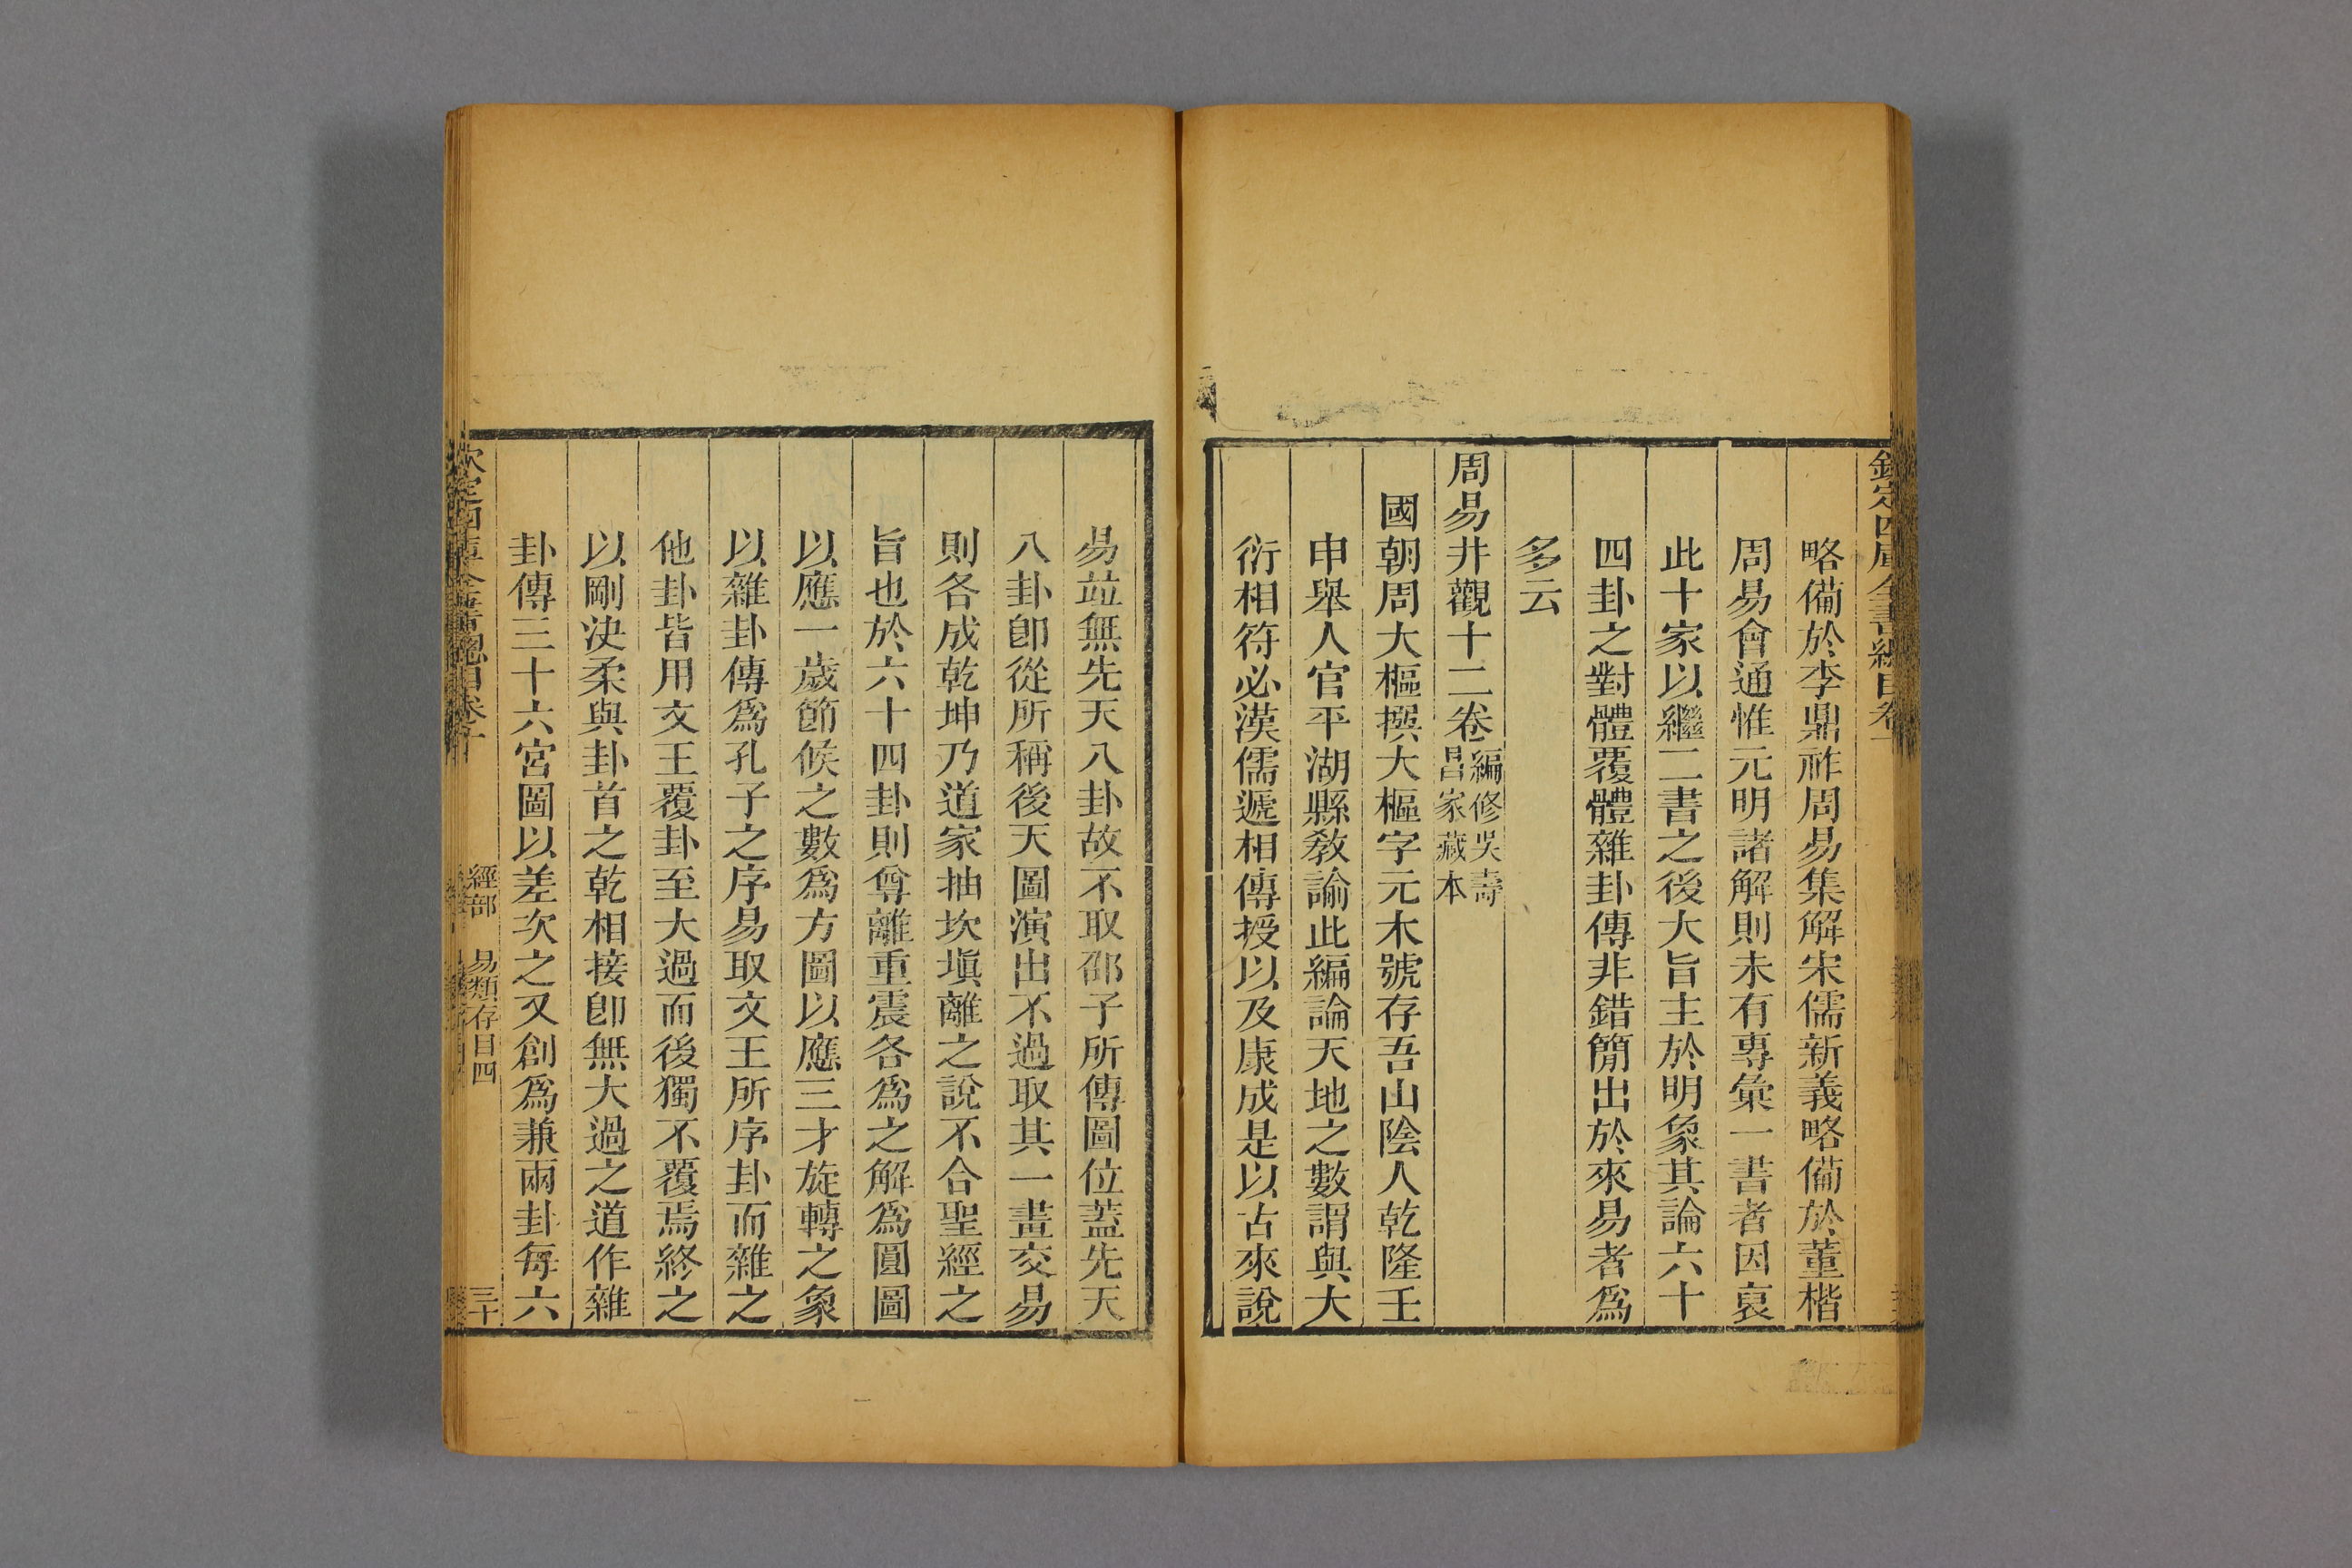 略備於李鼎祚周易集解宋儒新義略備於董楷
周易會通惟元明諸解則未有專彙一書者因裒
此十家以繼二書之後大旨主於明象其論六十
四卦之對體覆體雜卦傳非錯簡出於來易者爲
多云
周易井觀十二卷編修吳壽昌家藏本
國朝周大樞撰大樞字元木號存吾山陰人乾隆壬
申舉人官平湖縣敎諭此編論天地之數謂與大
衍相符必漢儒遞相傳授以及康成是以古來說
易竝無先天八卦故不取邵子所傳圖位蓋先天
八卦卽從所稱後天圖演出不過取其一畫交易
則各成乾坤乃道家抽坎塡離之說不合聖經之
旨也於六十四卦則尊離重震各爲之解爲圓圖
以應一歲節候之數爲方圖以應三才旋轉之象
以雜卦傳爲孔子之序易取文王所序卦而雜之
他卦皆用文王覆卦至大過而後獨不覆焉終之
以剛決柔與卦首之乾相接卽無大過之道作雜
卦傳三十六宮圖以差次之又創爲兼兩卦每六
欽定四庫全書總目卷十 經部 易類存目四 三十